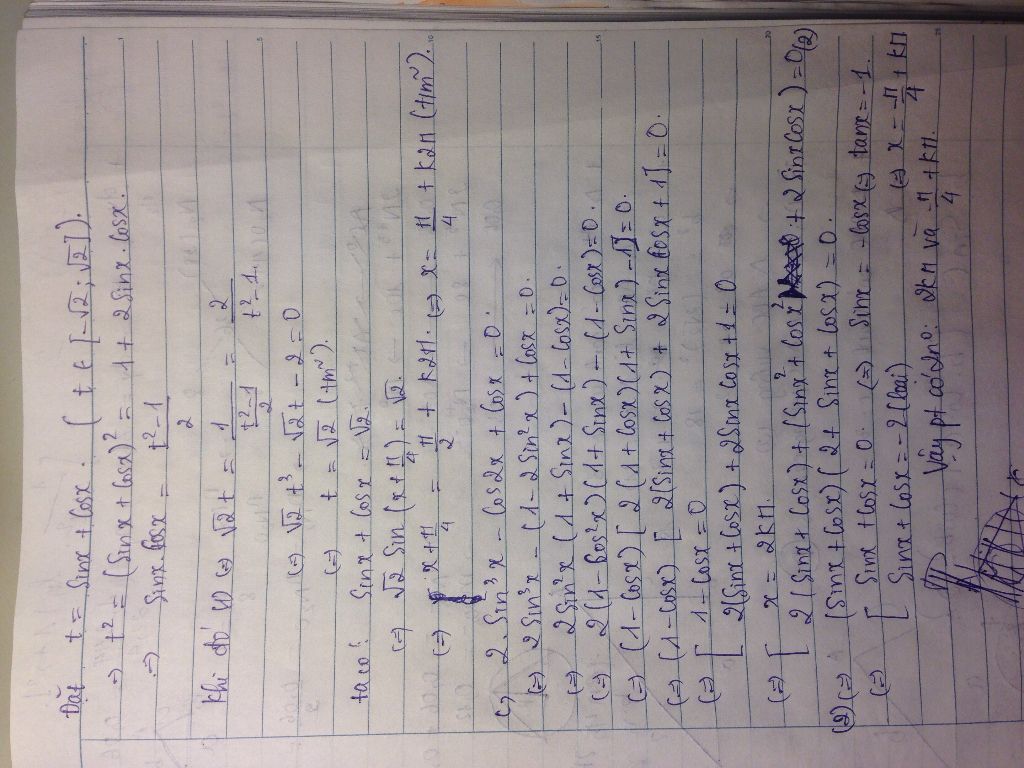 Đặt t = sinx + cosx. ( t ∈ [-√2; √2]).
⇒ t² = (sinx + cosx)² = 1 + 2sinx cosx.
⇒ sinx cosx = (t² - 1)/2
Khi đó (1) (=) √2t = 1/((t²-1)/2) = 2/(t²-1).
(=) √2t³ - √2t - 2 = 0
(=) t = √2 (tm~).
ta có: sinx + cosx = √2.
(=) √2 sin(x + π/4) = √2.
(=) x + π/4 = π/2 + k2π. (=) x = π/4 + k2π (tm~).
c, 2.sin³x - cos2x + cosx = 0.
(=) 2sin³x - (1 - 2sin²x) + cosx = 0.
(=) 2sin²x(1 + sinx) - (1 - cosx) = 0.
(=) 2(1 - cos²x)(1 + sinx) - (1 - cosx) = 0.
(=) (1 - cosx)[2(1 + cosx)(1 + sinx) - 1] = 0.
(=) (1 - cosx)[2(sinx + cosx) + 2sinx cosx + 1] = 0.
(=) [ 1 - cosx = 0
2(sinx + cosx) + 2sinx cosx + 1 = 0
(=) [ x = 2kπ.
2(sinx + cosx) + (sinx² + cosx² + 2sinxcosx) = 0 (2)
(2) (=) (sinx + cosx)(2 + sinx + cosx) = 0.
(=) [ sinx + cosx = 0. (=) sinx = -cosx (=) tanx = -1.
sinx + cosx = -2 (loại) (=) x = -π/4 + kπ
Vậy pt có 2 no: 2kπ và -π/4 + kπ.